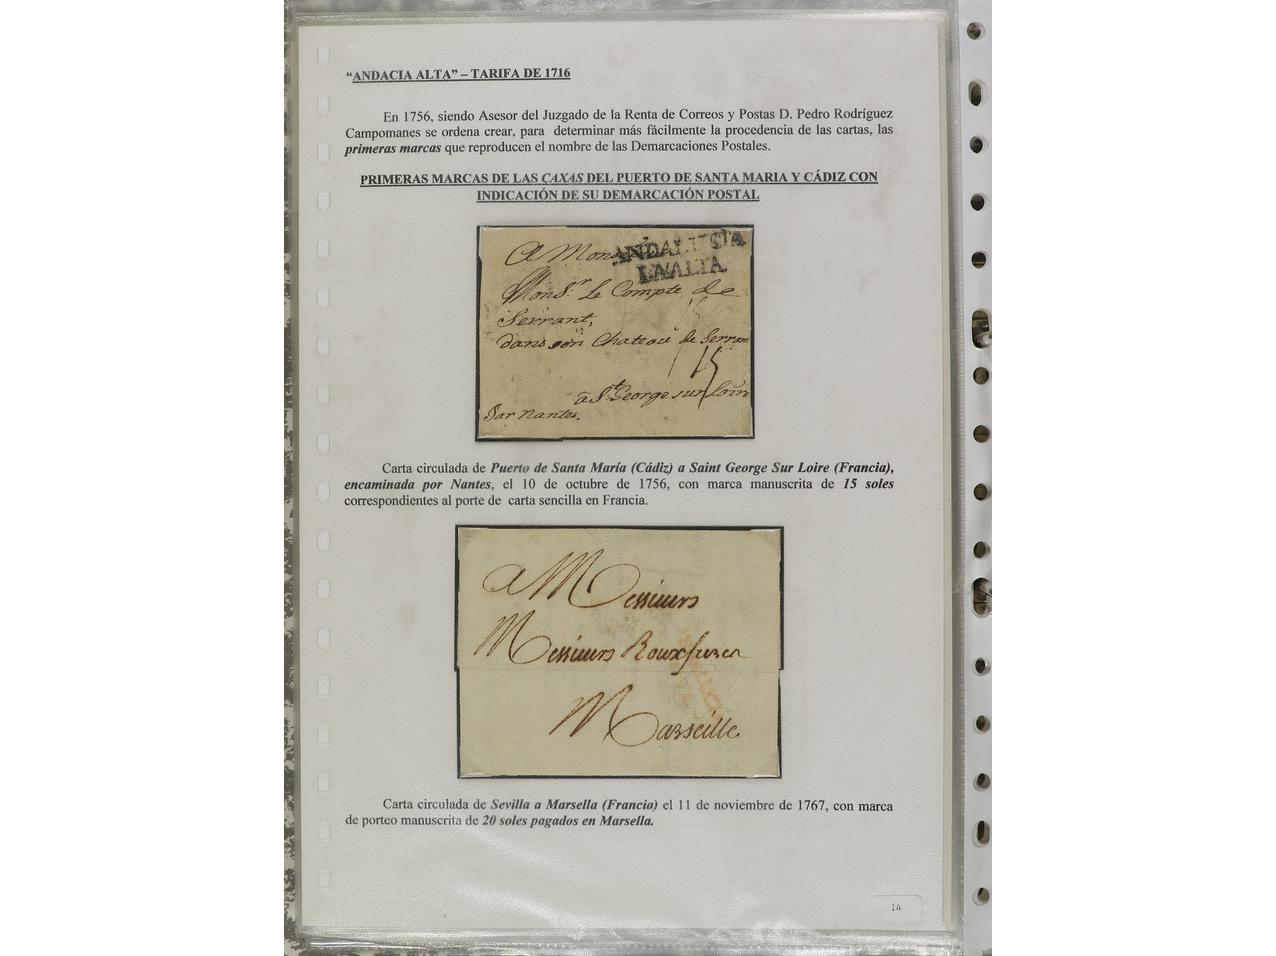 “ANDACIA ALTA” – TARIFA DE 1716
En 1756, siendo Asesor del Juzgado de la Renta de Correos y Postas D. Pedro Rodríguez
Campomanes se ordena crear, para determinar más fácilmente la procedencia de las cartas, las
primeras marcas que reproducen el nombre de las Demarcaciones Postales.
PRIMERAS MARCAS DE LAS CAXAS DEL PUERTO DE SANTA MARIA Y CÁDIZ CON
INDICACIÓN DE SU DEMARCACIÓN POSTAL
A Mons
ANDALUCIA
LAALTA
Monsr. Le Compte de
Serrant,
dans son Chateau de Serran
15
a St. George sur Loire
Par Nantes.
Carta circulada de Puerto de Santa María (Cádiz) a Saint George Sur Loire (Francia),
encaminada por Nantes, el 10 de octubre de 1756, con marca manuscrita de 15 soles
correspondientes al porte de carta sencilla en Francia.
A Messieurs
Messieurs Roux
Marseille
Carta circulada de Sevilla a Marsella (Francia) el 11 de noviembre de 1767, con marca
de porteo manuscrita de 20 soles pagados en Marsella.
14